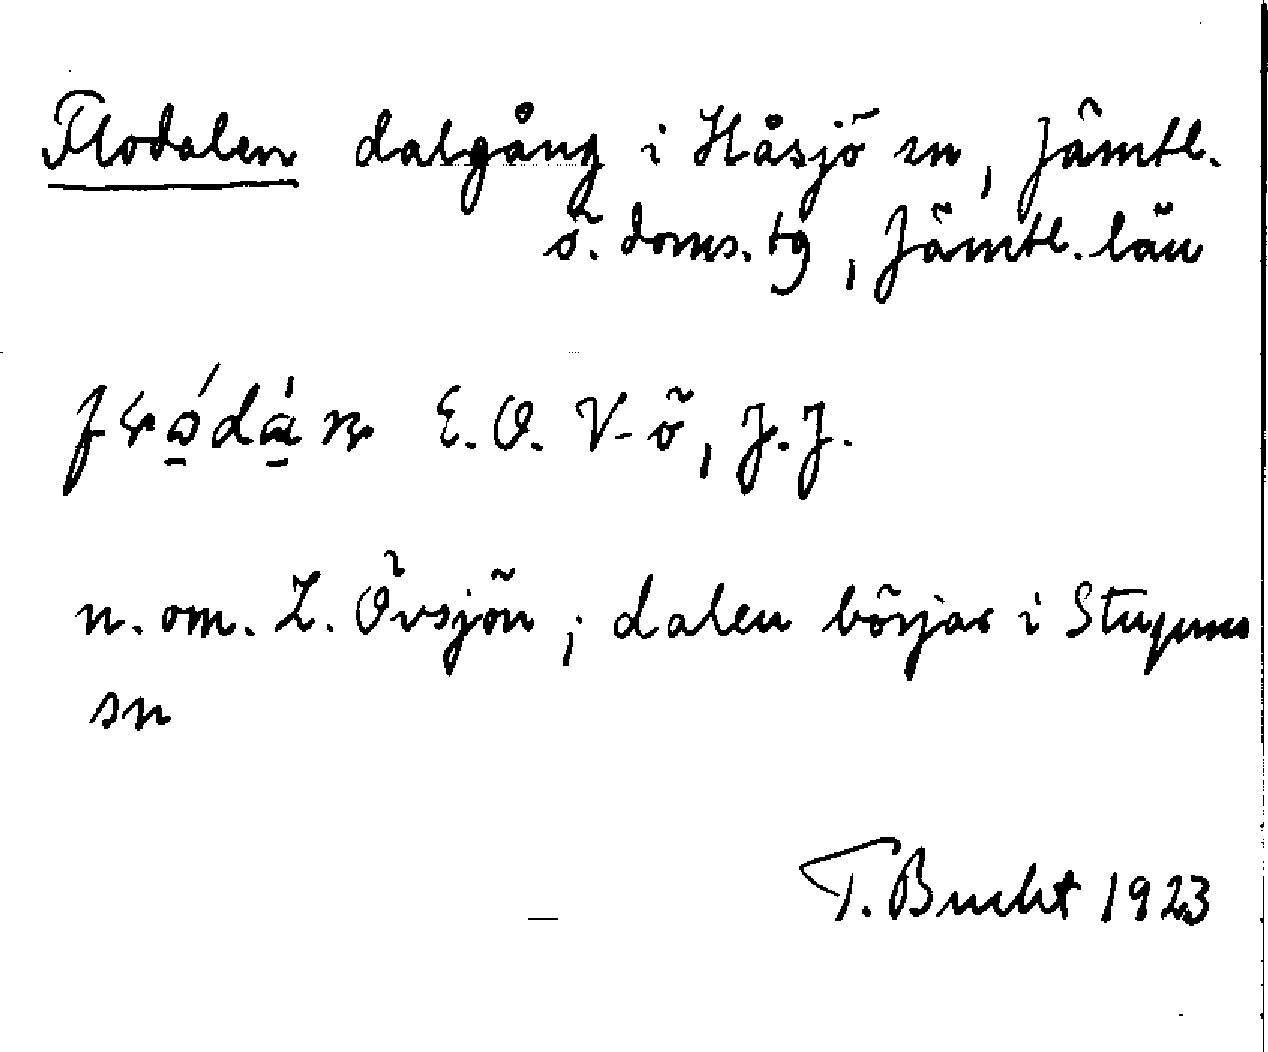 Flodalen dalgång i Håsjö sn, Jämtl.
ö. doms. tg, Jämtl. län
E.O. V-ö, J.J.
n. om. L. Övsjön; dalen börjar i Stuguns
sn
T. Bucht 1923